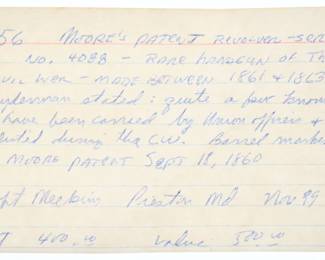 56 MOORE'S PATENT REVOLVER - SER
NO. 4088 - RARE HANDGUN OF TH
IVIL WAR - MADE BETWEEN 1861 & 1863
stated : quite a few know
have been carried by Union officers &
during the CW. Barrel marke
MOORE PATENT SEPT 18, 1860
Preston Md Nov 99
400.00 value 500.00